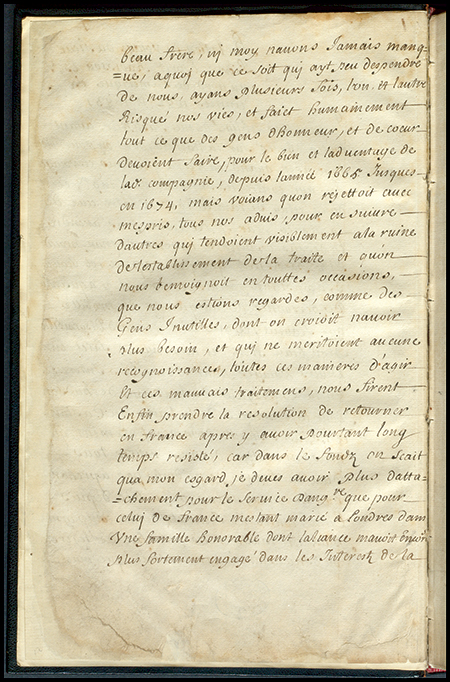 beau frere, nj moy navons Jamais manq-
=ue, a quoj que ce soit qui ayt peu despendre
de nous, ayans plusieurs fois, l'un, et lautre
Risqué nos vies, et faict humainement
tout ce que des gens dhonneur, et de coeur
devoient faire, pour le bien et ladventage de
lad.e compagnie, depuis lannée 1665 Jusques-
en 1674, mais voians quon rejettoit avec
mespris, tous nos advis, pour en suivre
dautres qui tendoient visiblement a la ruine
de lestablissement de la traite et quon
nous temoignoit en touttes occasions,
que nous estions regardes, comme des
Gens Inutilles, dont on croioit navoir
plus besoin, et qui ne meritoient aucune
recognoissances, toutes ces manieres d'agir
Et ces mauvais traitemens, nous firent
Enfin prendre la resolution de retourner
en france apres y avoir pourtant long
temps resisté, car dans le fondz on scait
qua mon esgard, je devès avoir, plus datta-
=chement pour le service dang.re que pour
celui de france mestant marié a Londres dans
Une famille honorable dont laliance mavoit Encor
plus fortement engagé dans les Interestz de la